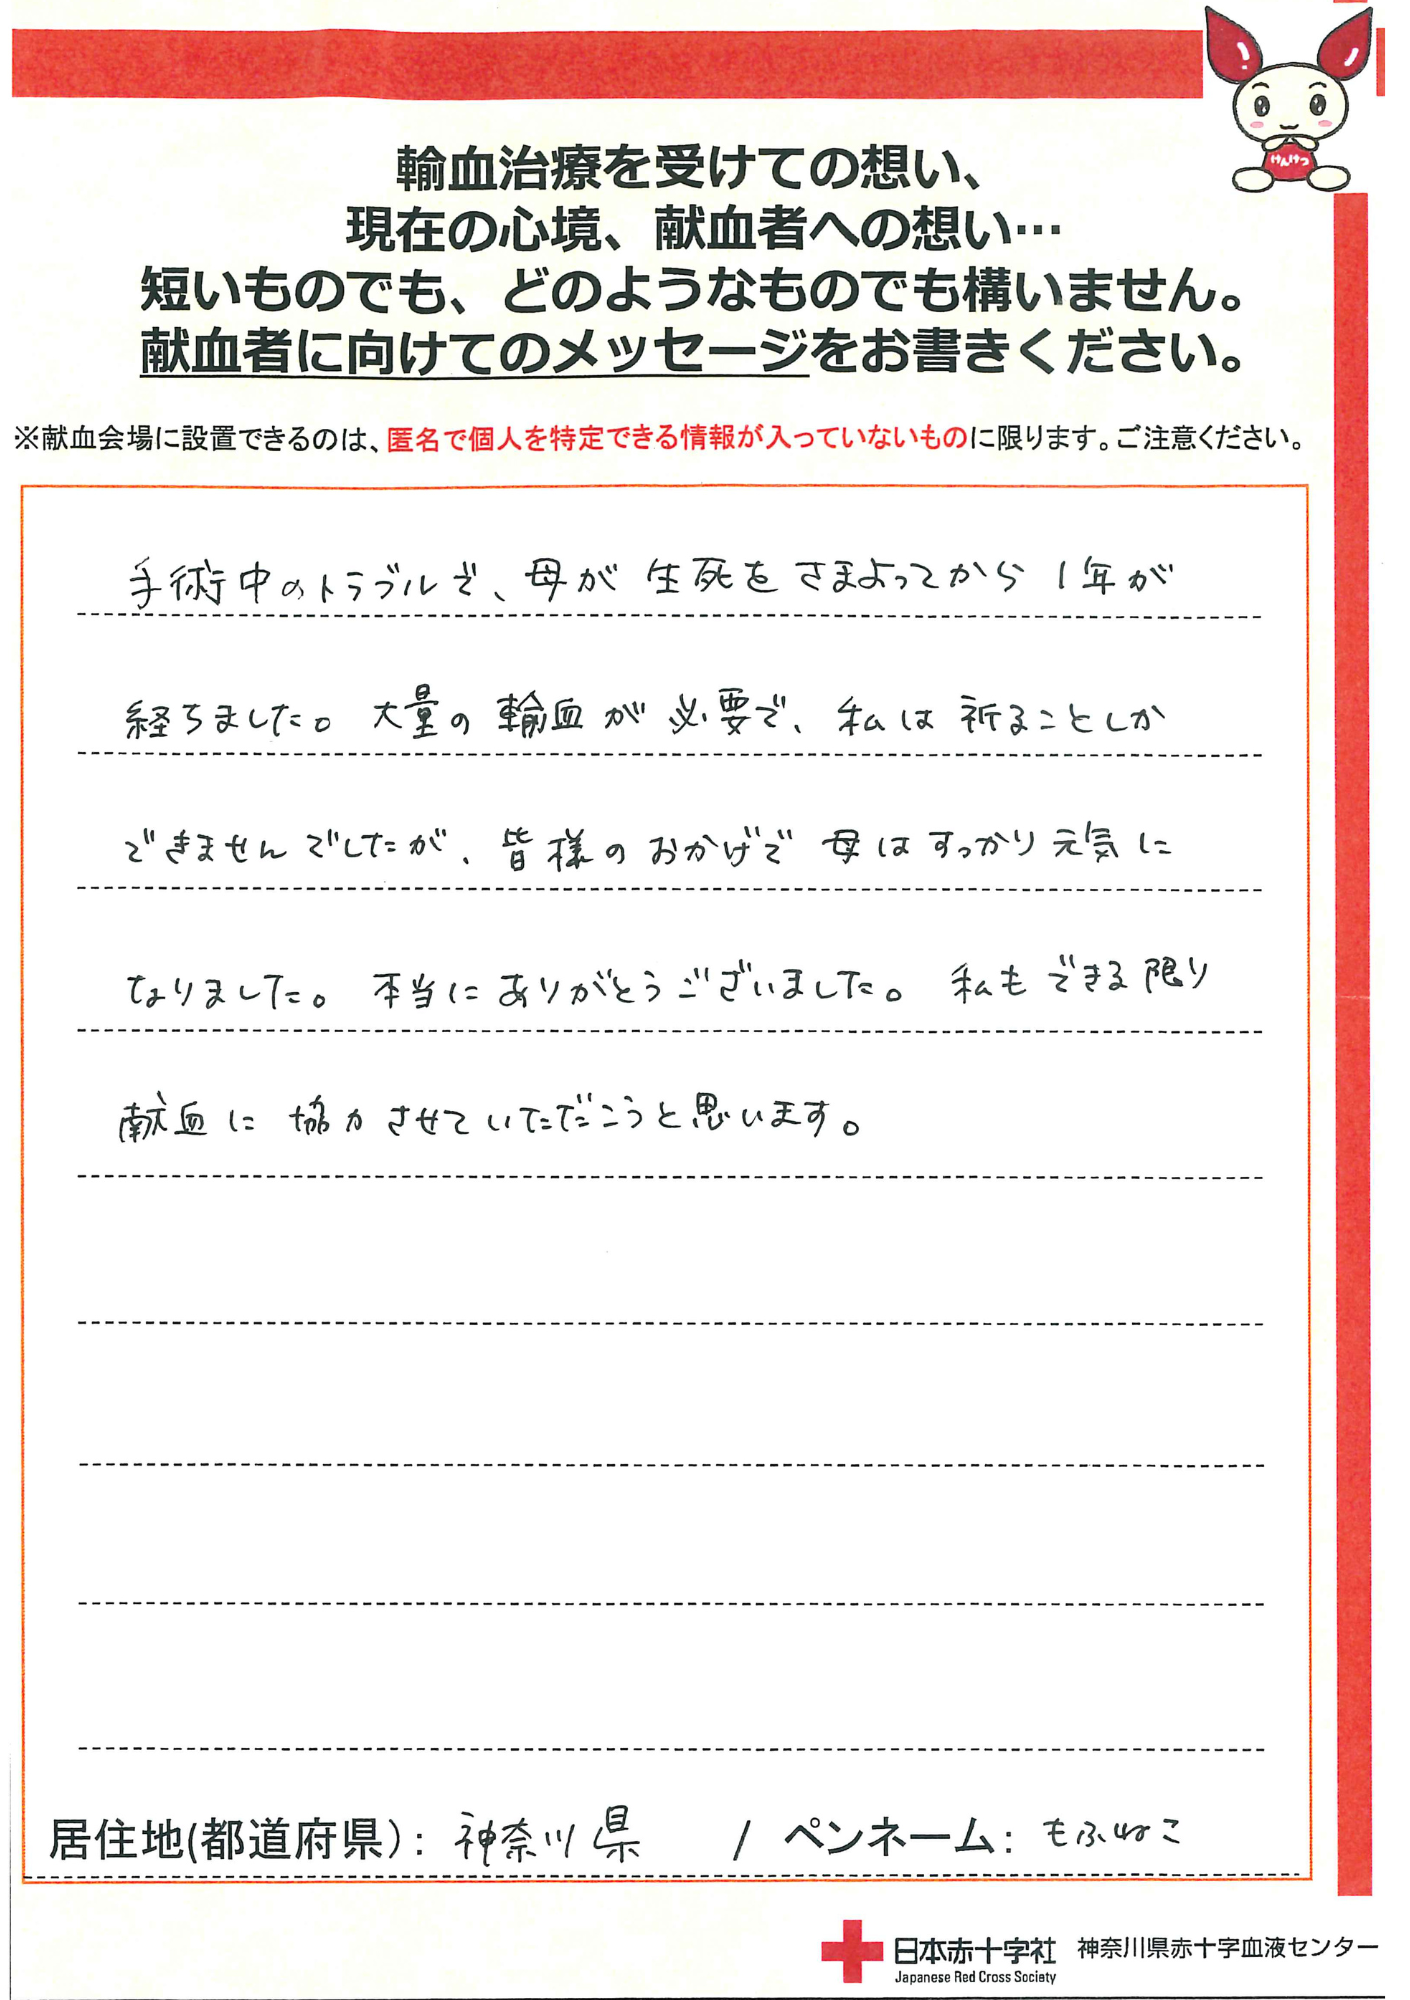 けんけつ
輸血治療を受けての想い、
現在の心境、献血者への想い…
短いものでも、どのようなものでも構いません。
献血者に向けてのメッセージをお書きください。
※献血会場に設置できるのは、匿名で個人を特定できる情報が入っていないものに限ります。ご注意ください。
手術中のトラブルで、母が生死をさまよってから1年が
経ちました。大量の輸血が必要で、私は祈ることしか
できませんでしたが、皆様のおかげで母はすっかり元気に
なりました。本当にありがとうございました。私もできる限り
献血に協力させていただこうと思います。
居住地(都道府県)：神奈川県 / ペンネーム：もふねこ
日本赤十字社 神奈川県赤十字血液センター
Japanese Red Cross Society